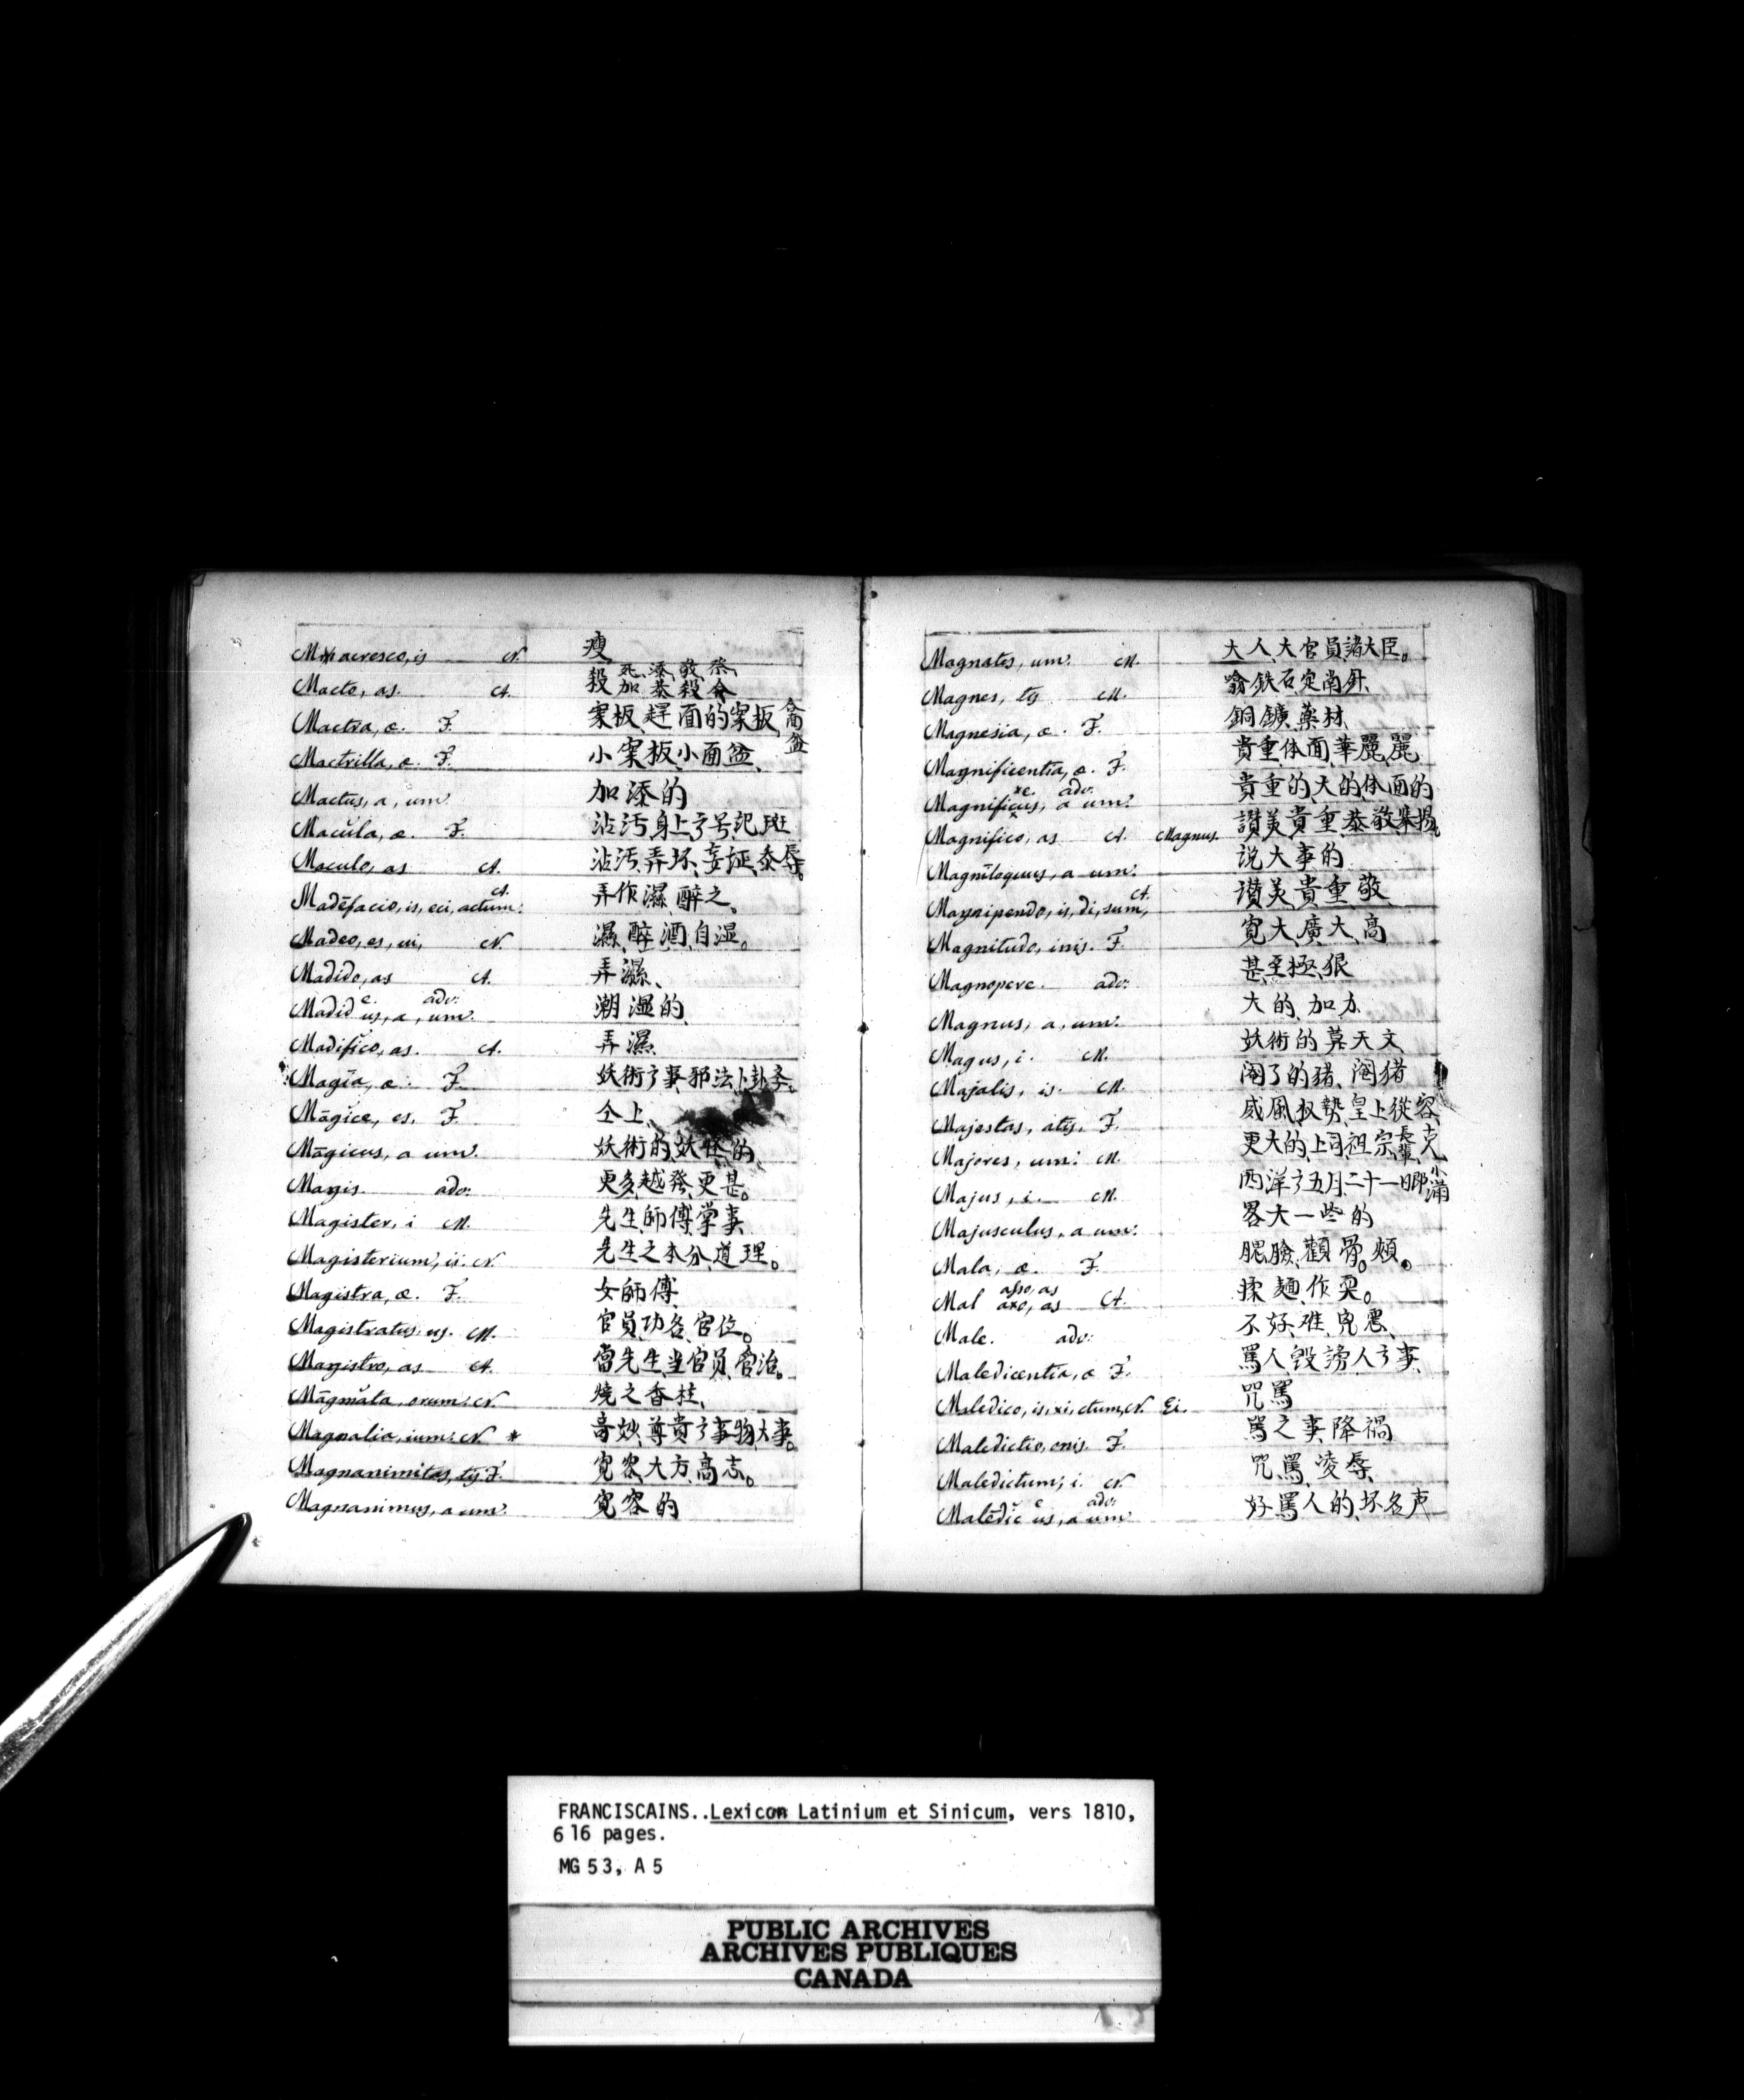 Macresco, is N. 瘦
Macto, as. A. 殺死、添、敬、祭、加、恭、殺、合
Mactra, æ. F. 案板、趕面的案板、禽盆
Mactrilla, æ. F. 小案板、小面盆、
Mactus, a, um. 加添的
Macŭla, æ. F. 沾汚、身上亇号、記、斑
Maculo, as A. 沾汚、弄坏、玷、辱。
Madēfacio, is, eci, actum: A. 弄作濕、醉之、
Madeo, es, ui, N. 濕、醉酒、自湿。
Madido, as A. 弄濕、
Madid e. us, a, um. adv: 潮湿的
Madifico, as. A. 弄濕
Magīa, æ. F. 妖術亇事、邪法、卜卦
Māgice, es. F. 仝上、
Māgicus, a um. 妖術的、妖怪的
Magis adv: 更多、越發、更甚。
Magister, i M. 先生、師傅、掌事
Magisterium, ii. N 先生之本分、道理。
Magistra, æ. F. 女師傅
Magistratus, us. M. 官員、功名、官位。
Magistro, as A. 當先生、当官員、管治。
Māgmăta, orum: N. 燒之香
Magnalia, ium: N. * 奇妙、尊貴亇事物、大事。
Magnanimitas, tis F. 寬容、大方、高志。
Magnanimus, a um. 寬容的
Magnates, um. M. 大人、大官員、諸大臣。
Magnes, tis M. 翕鉄石、定南針、
Magnesia, æ. F. 銅鑛、藥材、
Magnificentia, æ. F. 貴重、体面、華麗、麗
Magnificus, a um. xe adv: 貴重的、大的、体面的
Magnifico, as A. Magnus. 讃美、貴重、恭敬、
Magnīloquus, a um. 说大事的
Magnipendo, is, di, sum, A. 讃美、貴重、敬
Magnitudo, inis. F. 寬大、廣大、高
Magnopere. adv: 甚、至極、狠
Magnus, a, um. 大的、加力
Magus, i. M. 妖術的、天文
Majalis, is. M. 閹了的猪、閹猪
Majestas, atis. F. 威風、权勢、皇上、從容
Majores, um: M. 更大的、上司、祖宗、長輩、
Majus, i. M. 西洋亇五月、二十一日即小滿
Majusculus, a um: 畧大一些的
Mala, æ. F. 腮臉、顴骨。頰。
Mal asso, as axo, as A. 揉麵、作
Male. adv: 不好、难、兇惡、
Maledicentia, æ F. 罵人、毀謗人亇事
Maledico, is, xi, ctum, N. Ei. 咒罵
Maledictio, onis. F. 罵之事、降禍
Maledictum, i. N. 咒罵、凌辱
Maledĭc e us, a um adv: 好罵人的、坏名声
FRANCISCAINS..Lexicon Latinium et Sinicum, vers 1810,
616 pages.
MG 53, A 5
PUBLIC ARCHIVES
ARCHIVES PUBLIQUES
CANADA